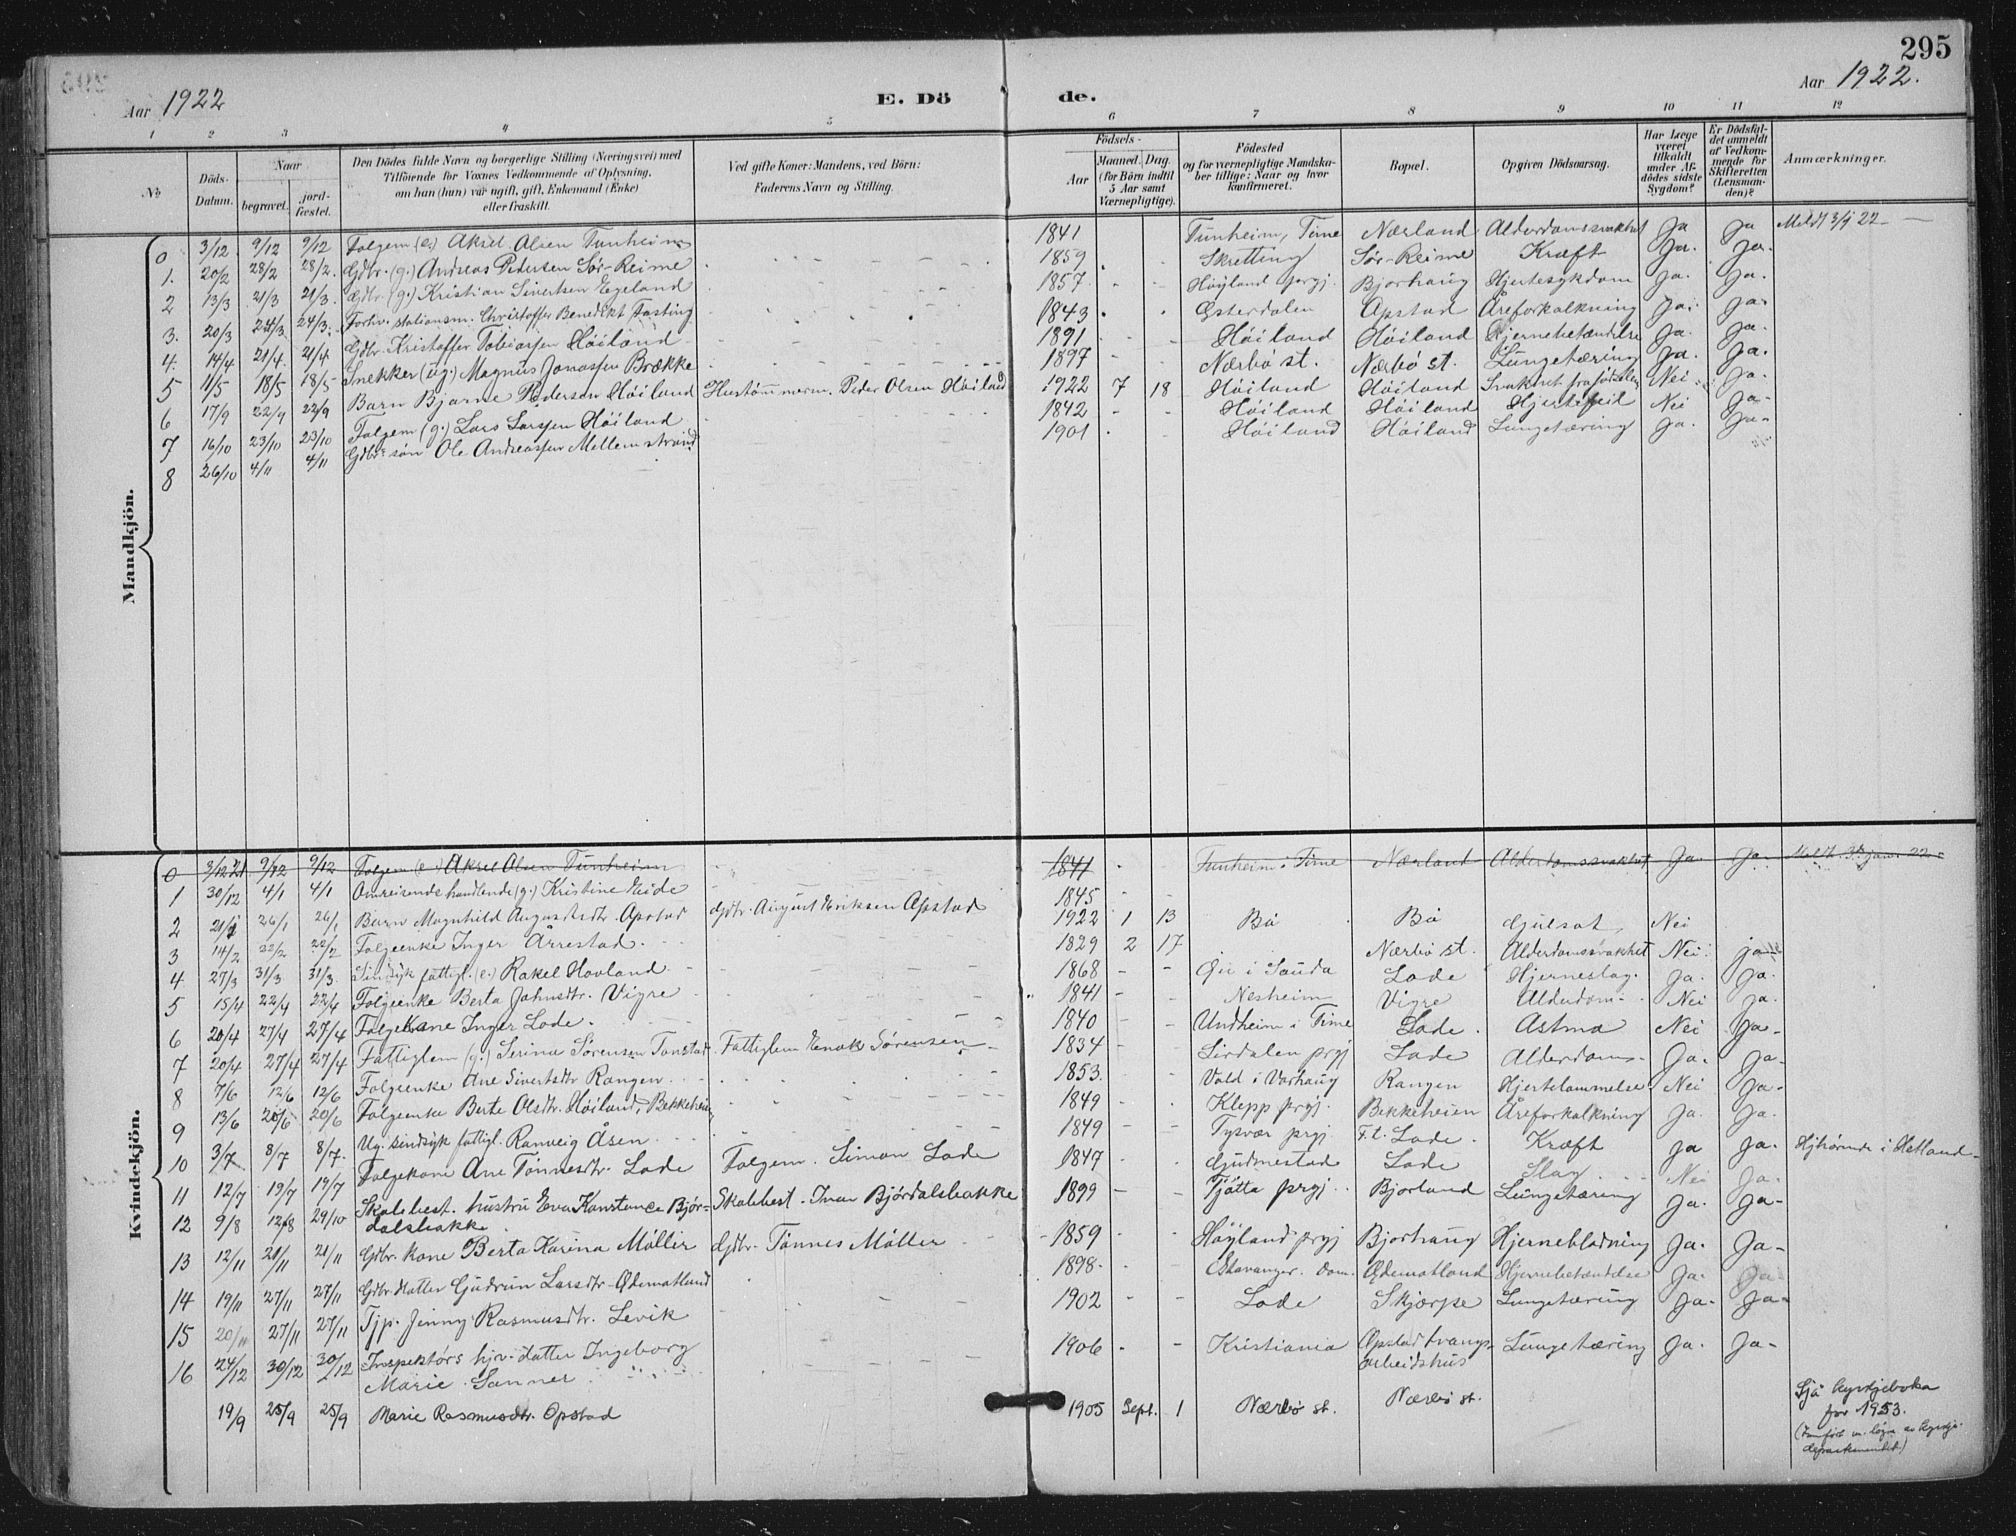 295
Aar 1922
E. Dö
de.
Aar 1922.
1 2 3 4 5 6 7 8 9 10 11 12
No
Döds-Datum.
Naar
begravet.
jordfæstet.
Den Dödes fulde Navn og borgerlige Stilling (Næringsvei) med
Tilföiende for Voxnes Vedkommende af Oplysning,
om han (hun) var ugift, gift, Enkemand (Enke)
eller fraskilt.
Ved gifte Koner: Mandens, ved Börn:
Faderens Navn og Stilling.
Födsels-
Aar
Maaned. Dag.
(for Börn indtil
5 Aar samt
Værnepligtige).
Födested
og for værnepligtige Mandskaber tillige: Naar og hvor
konfirmeret.
Bopæl.
Opgiven Dödsaarsag.
Har Læge
været
tilkaldt
under Afdödes sidste
Sygdom?
Er Dödsfaldet anmeldt
af Vedkommende for
Skifteretten
(Lensmanden)?
Anmærkninger.
Mandkjön.
0 3/12 9/12 9/12 Folgem (e.) Aksel Olsen Tunheim 1841 Tunheim, Time Nærland Alderdomssvakhet Ja Ja Meldt 3/1 22
1. 20/2 28/2 28/2. Gdbr. (g.) Andreas Pedersen Sör-Reime 1859 Skretting Sör-Reime Kræft Ja. Ja.
2 13/3 21/3 21/3. Gdbr. (g.) Kristian Sivertsen Egeland 1857 Höiland prgj. Bjorhaug Hjertesykdom Ja. Ja.
3. 20/3 24/3 24/3. Forhv. stationsm. Christoffer Benedikt Fasting 1843 Österdalen Opstad Åreforkalkning Ja. Ja.
4. 14/4 21/4. 21/4. Gdbr. Kristoffer Tobiassen Höiland 1891 Höiland Höiland Hjernebetændelse Ja. Ja.
5 11/5 18/5 18/5 Snekker (ug.) Magnus Jonassen Brække 1897 Nærbö st. Nærbö st. Lungetæring Ja. Ja.
6 17/9 22/9 22/9 Barn Bjarne Pedersen Höiland Hustömmerm. Peder Olsen Höiland 1922 7 18 Höiland Höiland Svakhet fra födselen Nei Ja.
7 16/10 23/10 23/10 Folgem (g.) Lars Larsen Höiland 1842 Höiland Höiland Hjertefeil Nei Ja-
8 26/10 4/11 4/11 Gdbr. sön Ole Andreassen Mellemstrand 1901 Höiland Höiland Lungetæring Ja. Ja-
Kvindekjön.
0 3/12 21 9/12 9/12 Folgem (e.) Aksel Olsen Tunheim 1841 Tunheim i Time Nærland Alderdomssvakhet Ja Ja Meldt 3. jan. 22
1 30/12 4/1 4/1 Omreisende handlende (g.) Kristine Eide 1845
2 21/1 26/1 26/1 Barn Magnhild Augustsdtr. Opstad Gdbr. August Eriksen Opstad 1922 1 13 Bö Bö Gulsot, Nei
3 14/2 22/2 22/2 Folgeenke Inger Årrestad. 1829 2 17 Nærbö st. Alderdomssvakhet Nei ja
4 27/3 31/3 31/3. Sindsyk fattigl. (e.) Rakel Hovland 1868 i Sauda Lode Hjerneslag. Ja. Ja.
5 15/4 22/4 22/4 Folgeenke Berta Johnsdtr. Vigre 1841 Nesheim Vigre Alderdom Nei Ja.
6 20/4 27/4 27/4 Folgekone Inger Lode. 1840 Undheim i Time Lode. Astma Nei Ja-
7 20/4 27/4 27/4 Fattiglem (g.) Serina Sörensen Tonstad Fattiglem Enok Sörensen 1834 Sirdalen prgj Lode Alderdoms- Ja. Ja-
8 7/6 12/6 12/6 Folgeenke Ane Sivertsdtr Rangen 1853. Vold i Varhaug Rangen Hjertelammelse Nei Ja-
9 13/6 20/6 20/6 Folgeenke Berte Olsdtr. Höiland, Bekkeheien 1849 Klepp prgj. Bekkeheien Åreforkalkning Ja. Ja.
10 3/7 8/7 8/7. Ug. sindsyk fattigl. Ranveig Åsen 1849 Tysvær prgj F.t. Lode. Kræft Ja Ja- Hjhörende i Hetland
11 12/7 19/7 19/7 Folgekone Ane Tönnesdtr. Lode Folgem. Simon Lode 1847 Gudmestad Lode Slag Nei Ja.
12 9/8 12/8 29/10 Skolebest. hustru Eva Konstance Björdalsbakke Skolebest. Ivar Björdalsbakke 1899 Tjötta prgj. Bjorland Lungetæring Ja. Ja-
13 12/11 21/11 21/11 Gdbr. kone Berta Karina Möller Gdbr. Tönnes Möller 1859 Höyland prgj Bjorhaug Hjerneblödning Ja. Ja-
14 19/11 27/11 27/11 Gdbr. datter Gudrun Larsdtr. Ödemotland 1898. Stavanger dom. Ödemotland Hjernebetændelse Ja. Ja
15 20/11 27/11 27/11 Tjp. Jenny Rasmusdtr. Levik 1902 Lode Skjærpe Lungetæring Ja. Ja-
16 24/12 30/12 30/12 Inspektörs hjv. datter Ingeborg Marie Sanner 1906 Kristiania Opstad tvangsarbeidshus Lungetæring Ja. Ja-
19/9 25/9 25/9 Marie Rasmusdtr. Opstad 1905 Sept. 1 Nærbö st. Nærbö st. Sjå kyrkjeboka for 1953. departementet)